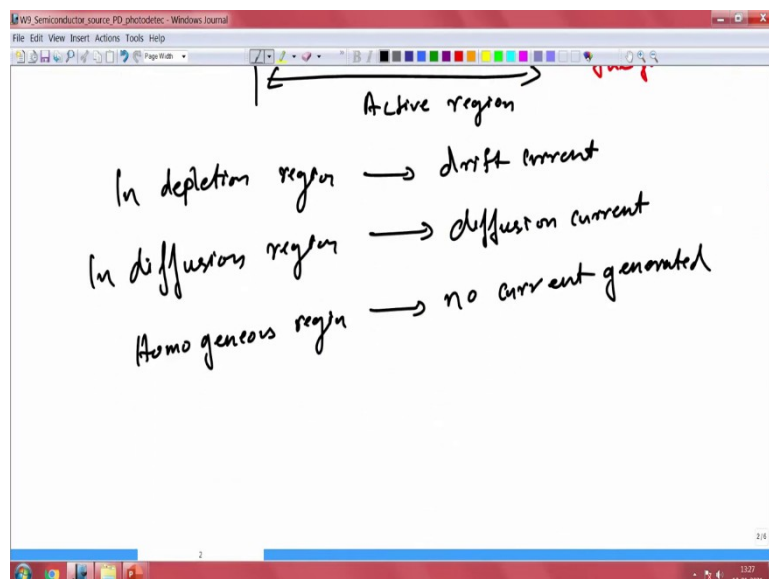 W9_Semiconductor_source_PD_photodetec - Windows Journal
File Edit View Insert Actions Tools Help
Page Width
B I
Active region
In depletion region → drift current
In diffusion region → diffusion current
Homogeneous region → no current generated
2/6
2
13:27